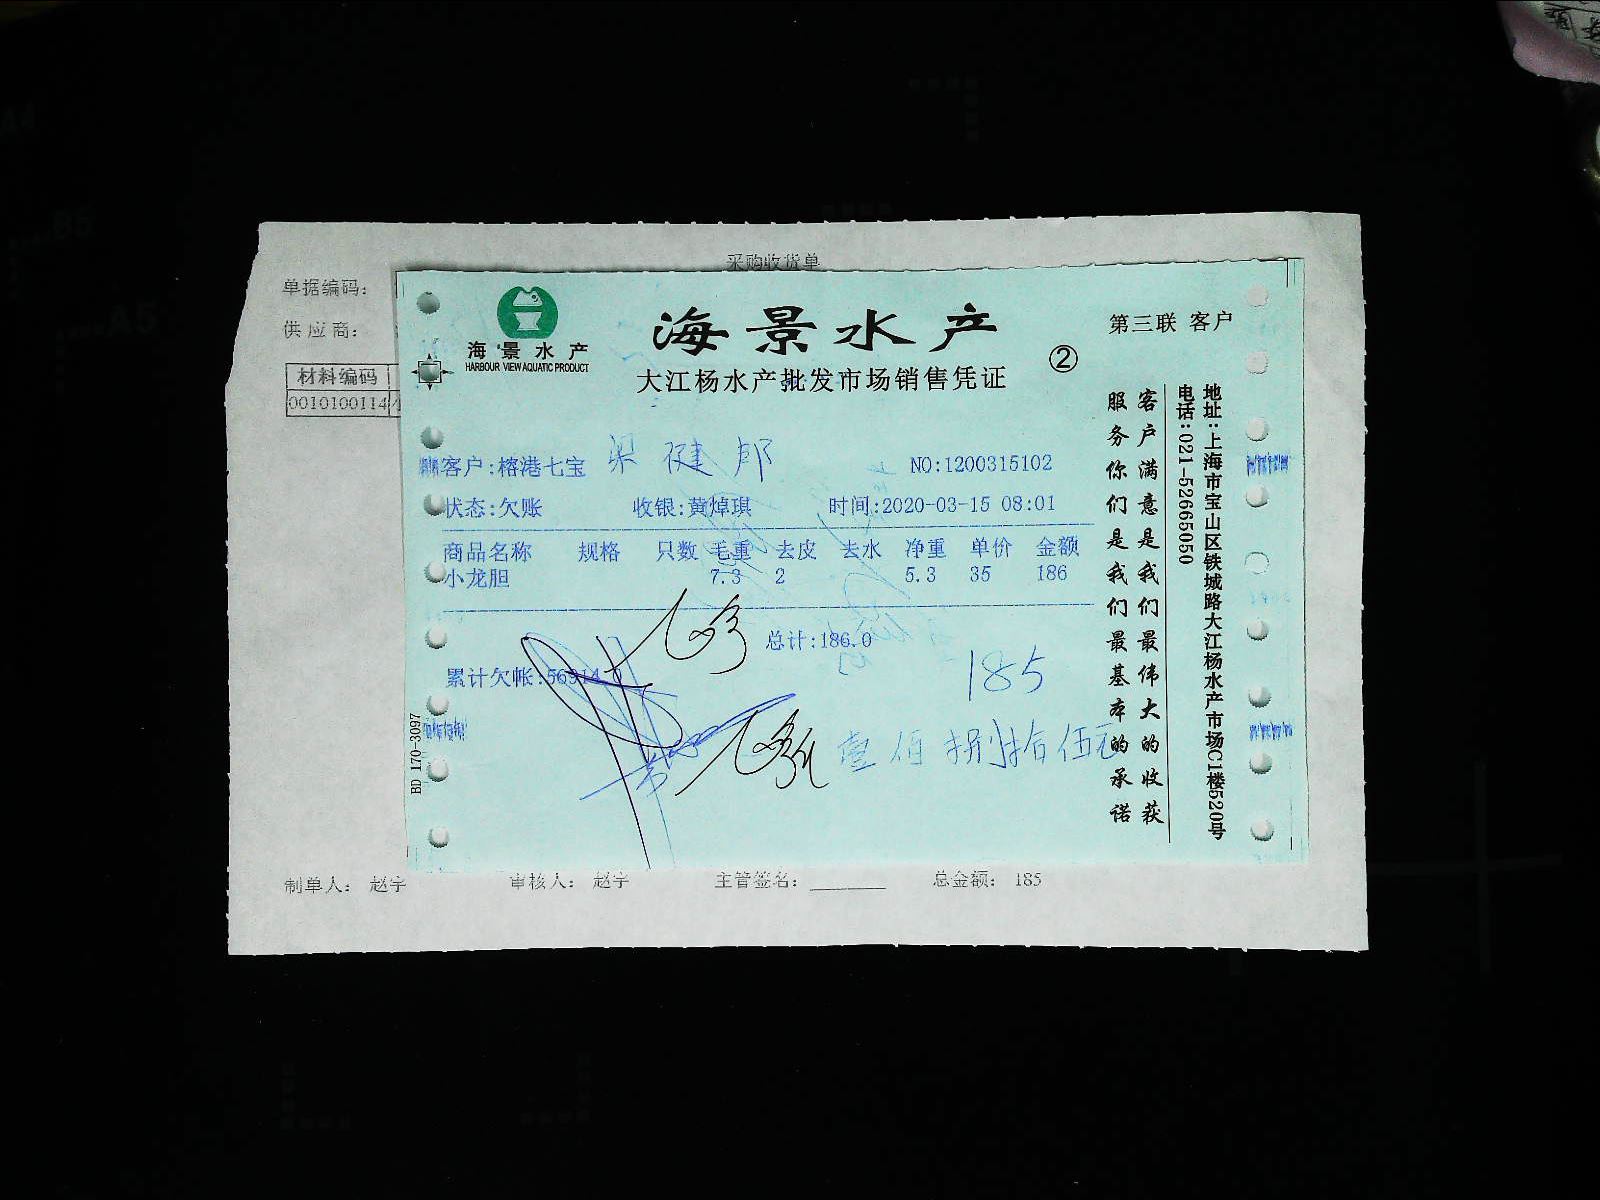 采购收货单
单据编码:
供应商:
材料编码
0010100114
海景水产
HARBOUR VIEW AQUATIC PRODUCT
海景水产
大江杨水产批发市场销售凭证
②
第三联 客户
客户:榕港七宝 梁健郎
NO:1200315102
状态:欠账 收银:黄焯琪 时间:2020-03-15 08:01
商品名称 规格 只数 毛重 去皮 去水 净重 单价 金额
小龙胆 7.3 2 5.3 35 186
总计:186.0
累计欠帐:56914.0
185
壹佰捌拾伍元
客户满意是我们最伟大的收获
服务你们是我们最基本的承诺
地址:上海市宝山区铁城路大江杨水产市场C1楼520号
电话:021-52665050
BD 170-3097
制单人: 赵宇 审核人: 赵宇 主管签名: 总金额: 185